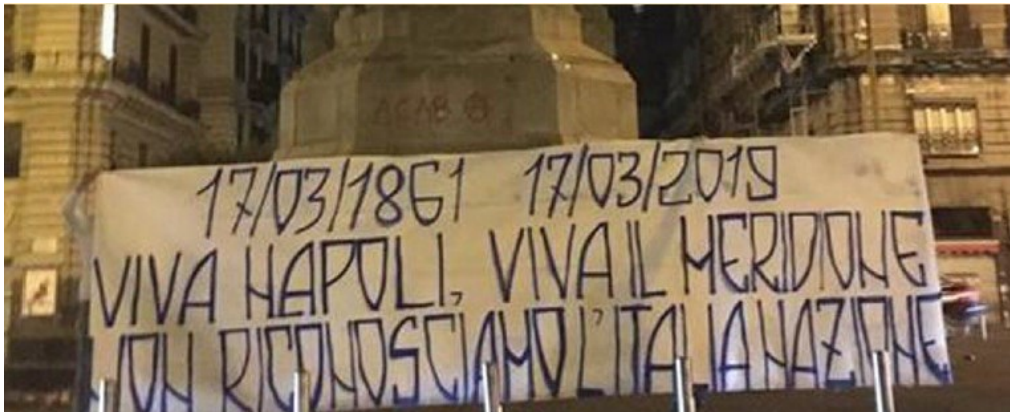 ACAB
17/03/1861 17/03/2019
VIVA NAPOLI, VIVA IL MERIDIONE
NON RICONOSCIAMO L'ITALIA NAZIONE